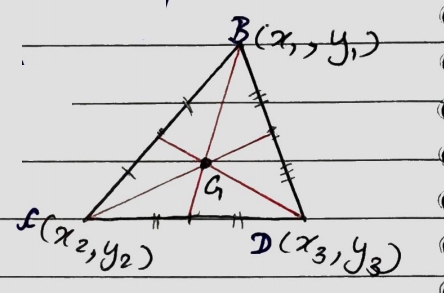 B(x₁, y₁)
G
C(x₂, y₂)
D(x₃, y₃)